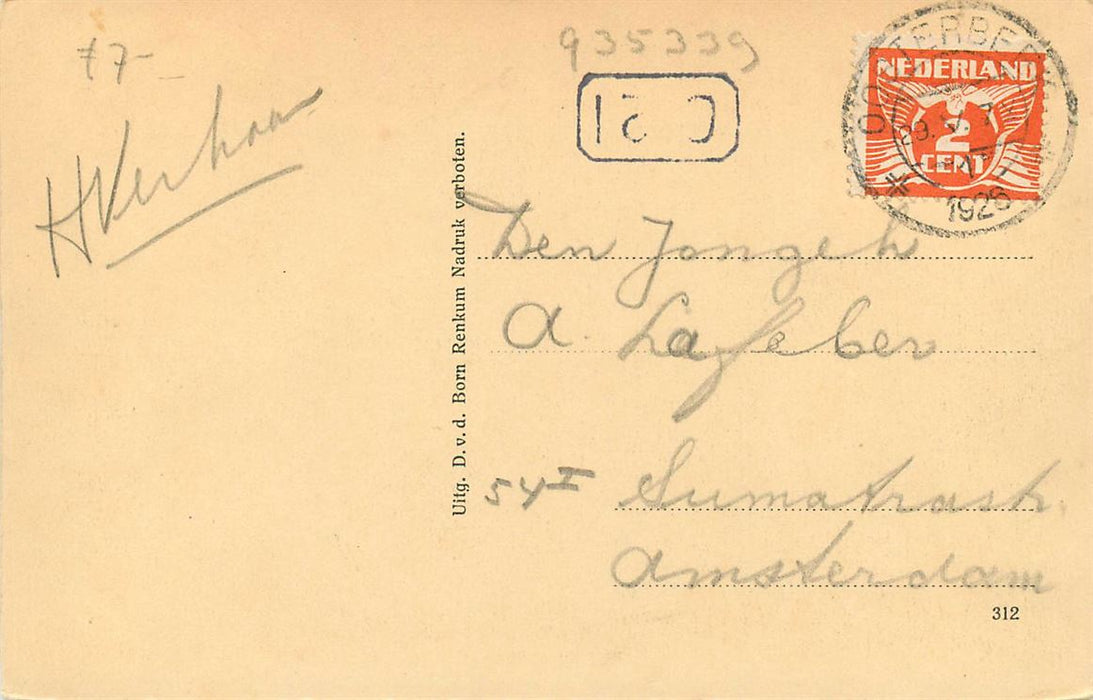 f7-
HVerhaar
935339
OOSTERBEEK
29.V. 7
1926
NEDERLAND
2
CENT
Den Jongeh
A. Lafeber
54 I Sumatrastr.
Amsterdam
312
Uitg. D. v. d. Born Renkum Nadruk verboten.